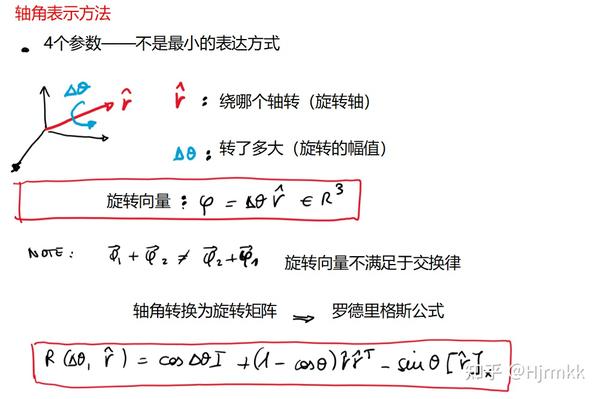 轴角表示方法
• 4个参数——不是最小的表达方式
Δθ
r̂
r̂ : 绕哪个轴转（旋转轴）
Δθ : 转了多大（旋转的幅值）
旋转向量 : φ = Δθ r̂ ∈ R³
NOTE: φ⃗₁ + φ⃗₂ ≠ φ⃗₂ + φ⃗₁ 旋转向量不满足于交换律
轴角转换为旋转矩阵 ⇒ 罗德里格斯公式
R(Δθ, r̂) = cos Δθ I + (1 - cosθ) r̂ r̂ᵀ - sin θ [r̂]ₓ
知乎 @Hjrmkk